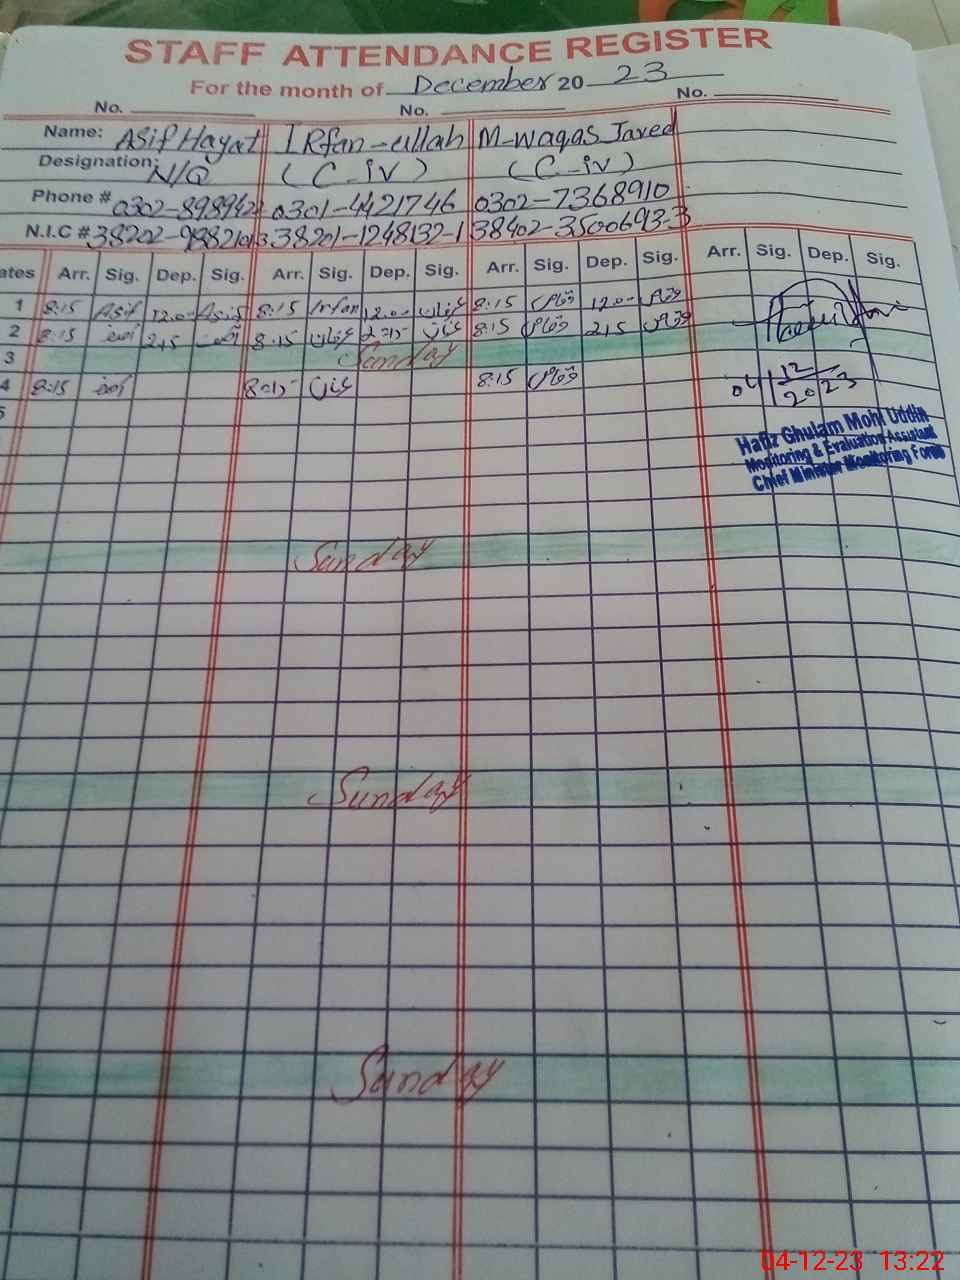 STAFF ATTENDANCE REGISTER
For the month of December 20 23
No. No. No.
Name: Asif Hayat IRfan-ullah M-Waqas Javed
Designation: N/Q (C-iv) (C-iv)
Phone # 0302-898942 0301-4421746 0302-7368910
N.I.C # 38201-1248132-1 38402-3500693-3
ates Arr. Sig. Dep. Sig. Arr. Sig. Dep. Sig. Arr. Sig. Dep. Sig. Arr. Sig. Dep. Sig.
1 8:15 Asif 12.0- Asif 8:15 Irfan 12.0- عرفان 8:15 وقاص 12.0- وقاص
2 8:15 آصف 2,5 آصف 8:15 عرفان 2=15 عرفان 8:15 وقاص 2,5 وقاص
3 Sunday
4 8:15 آصف 8:15 عرفان 8:15 وقاص
04/12/2023
5
Hafiz Ghulam Mohi Uddin
Monitoring & Evaluation Assistant
Chief Minister Monitoring Force
Sunday
Sunday
Sunday
04-12-23 13:22